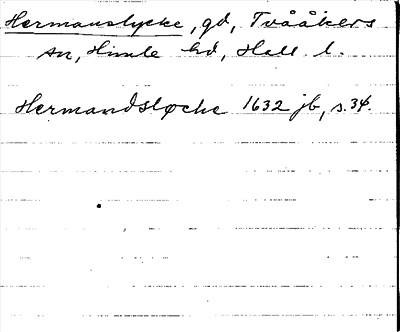 Hermanslycke, gd, Tvååkers
sn, Himle hd, Hall. l.
Hermandsløcke 1632 jb, s. 34.